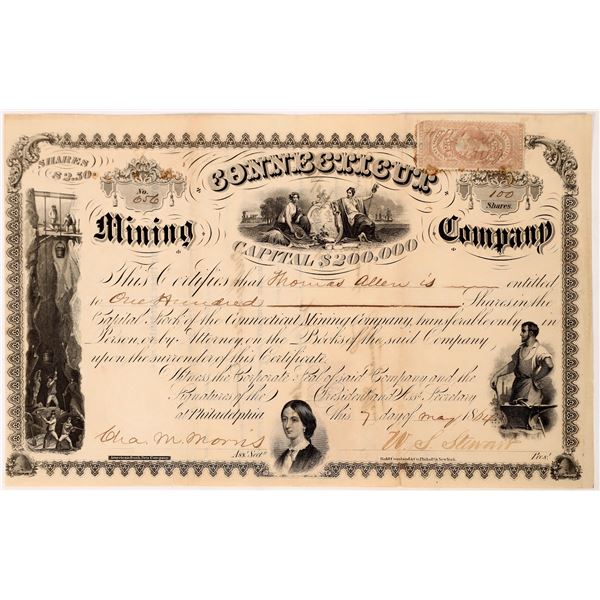 CONNECTICUT
SHARES
$2.50
No.
656
100
Shares.
Mining Company
CAPITAL $200,000
This Certifies that Thomas Allen is entitled
to One Hundred Shares in the
Capital Stock of the Connecticut Mining Company, transferable only in
Person, or by Attorney, on the Books of the said Company,
upon the surrender of this Certificate.
Witness, the Corporate Seal of said Company and the
Signatures of the President and Asst. Secretary
at Philadelphia this 7 day of May 1864
Cha. M. Morris W. S. Stewart
Asst. Secty. Pres.t
American Bank Note Company.